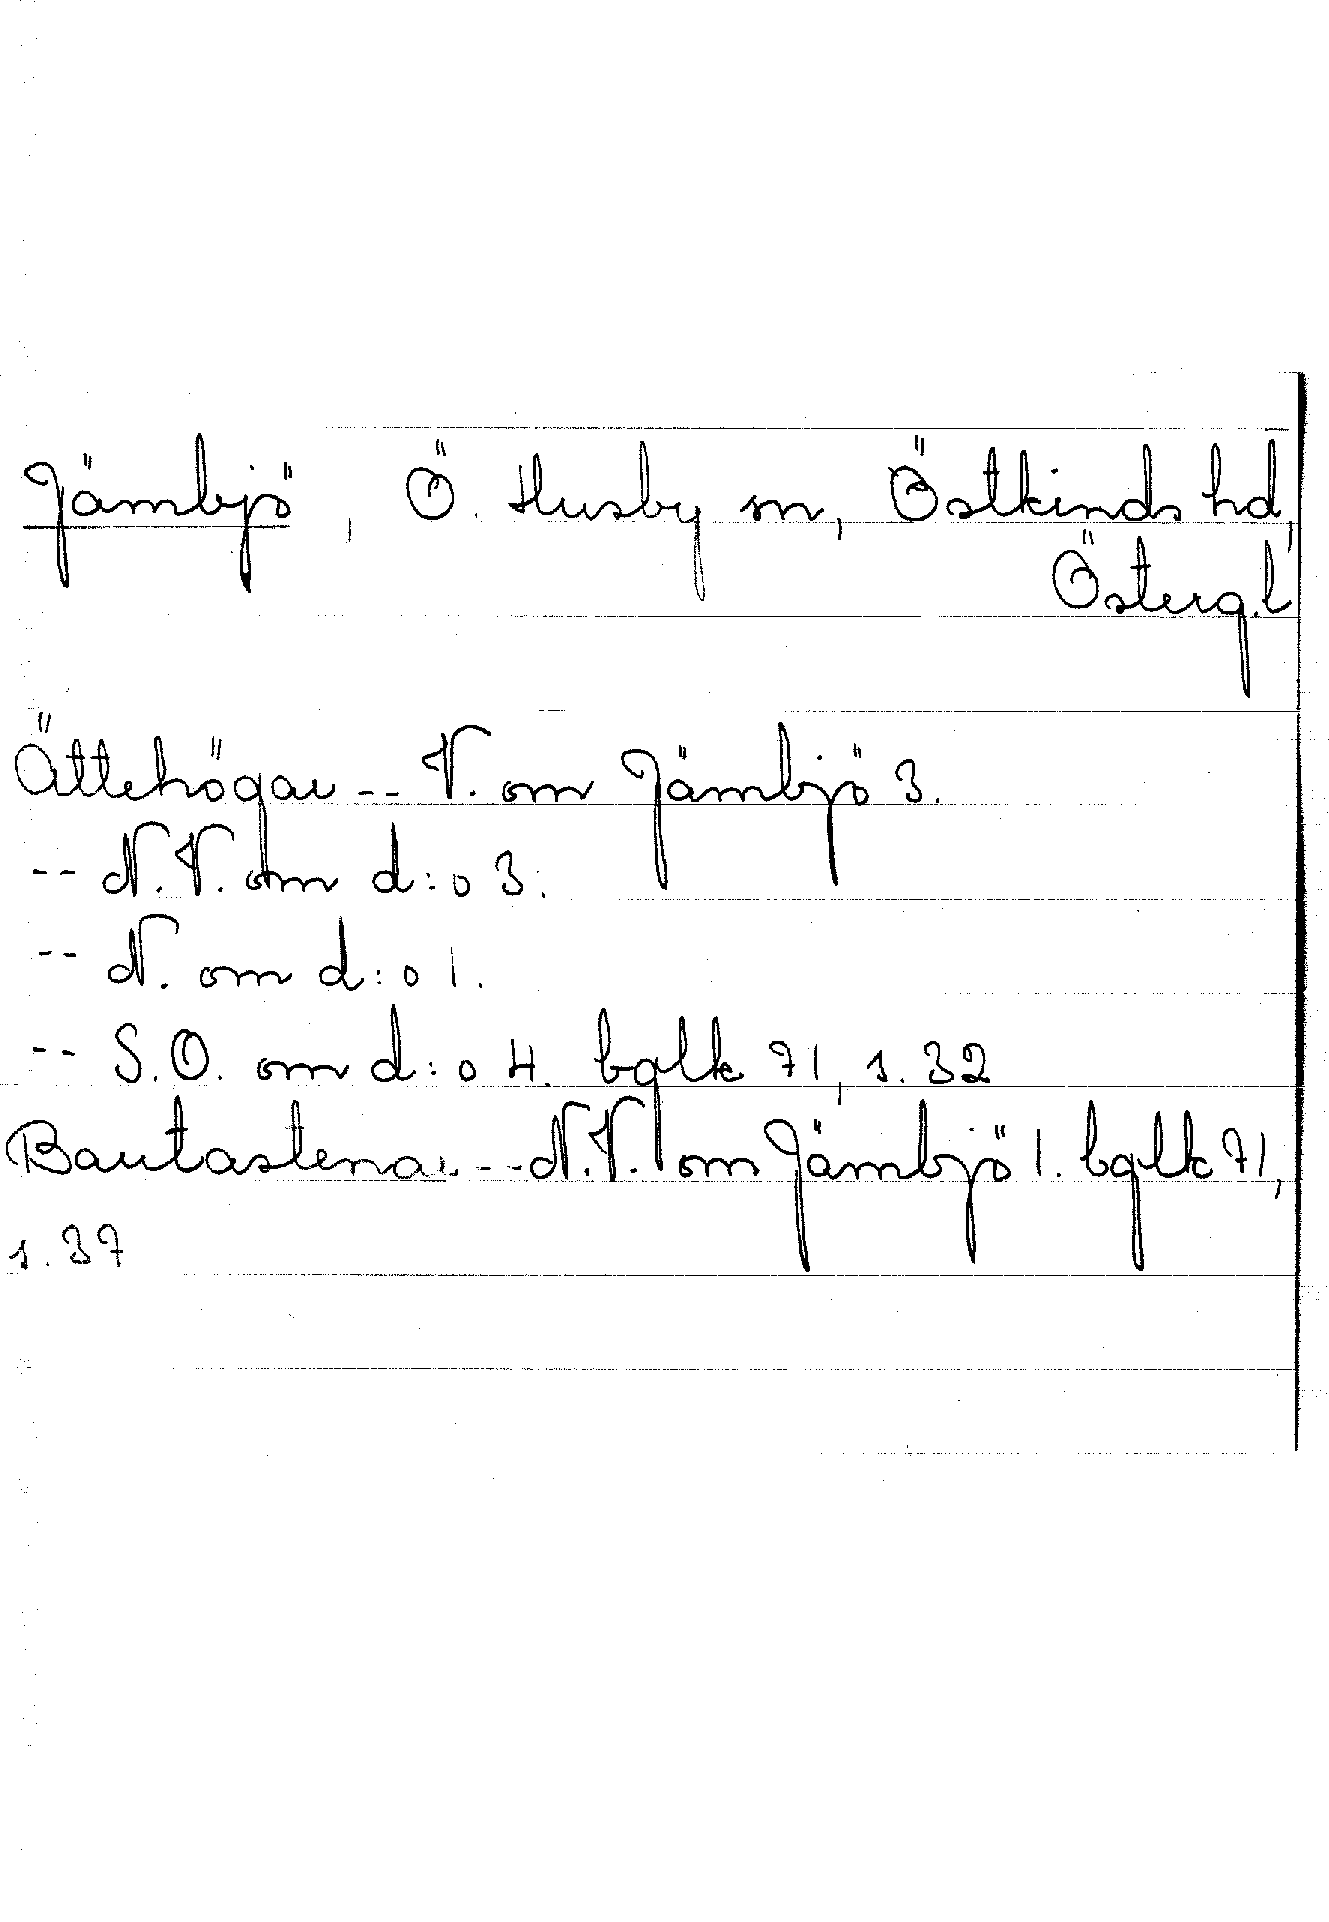 Jämbjö, Ö. Husby sn, Östkinds hd,
Österg.l
Ättehögar -- V. om Jämbjö 3.
-- N.V. om d:o 3.
-- N. om d:o 1.
-- S.O. om d:o 4. bglk 71, s. 32
Bautastenar -- N.V. om Jämbjö 1. bglk 71,
s. 37